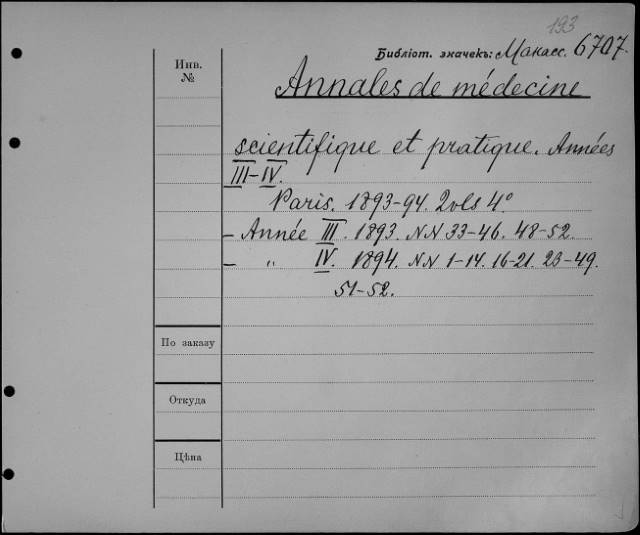 193
Библіот. значекъ: Макасс. 6707.
Инв.
№
Annales de médecine
scientifique et pratique. Années
III-IV.
Paris. 1893-94. 2 vols 4°
- Année III. 1893. NN 33-46. 48-52.
- " IV. 1894. NN 1-14. 16-21. 23-49.
51-52.
По заказу
Откуда
Цѣна